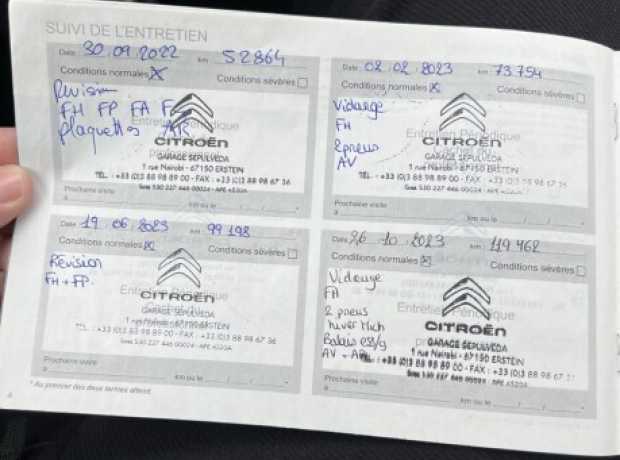 SUIVI DE L'ENTRETIEN
Date 30.09.2022 km 52864
Conditions normales Conditions sévères
Révision
FH FP FA F
plaquettes AR
Entretien Périodique
CITROËN
GARAGE SEPULVEDA
1 rue Nairobi - 67150 ERSTEIN
TEL. : +33 (0)3 88 98 89 00 - FAX : +33 (0)3 88 98 67 36
Prochaine visite
à km ou le
Date 02.02.2023 km 73.754
Conditions normales Conditions sévères
Vidange
FH
2 pneus
AV
Entretien Périodique
CITROËN
GARAGE SEPULVEDA
1 rue Nairobi - 67150 ERSTEIN
TEL. : +33 (0)3 88 98 89 00 - FAX : +33 (0)3 88 98 67 36
Prochaine visite
à km ou le
Date 19.06.2023 km 99198
Conditions normales Conditions sévères
Révision
FH + FP.
Entretien Périodique
CITROËN
GARAGE SEPULVEDA
1 rue Nairobi - 67150 ERSTEIN
TEL. : +33 (0)3 88 98 89 00 - FAX : +33 (0)3 88 98 67 36
Prochaine visite
à km ou le
Date 26.10.2023 km 119.462
Conditions normales Conditions sévères
Vidange
FH
2 pneus
hiver Mich
Balais ess/g
AV + AR
Entretien Périodique
CITROËN
GARAGE SEPULVEDA
1 rue Nairobi - 67150 ERSTEIN
+33 (0)3 88 98 89 00 - FAX : +33 (0)3 88 98 67
Prochaine visite
à km ou le
* Au premier des deux termes atteint